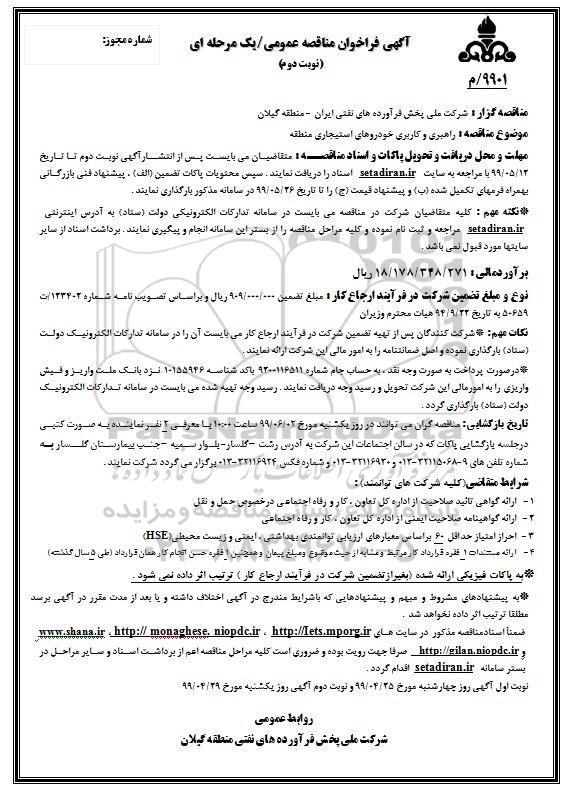 شماره مجوز:
آگهی فراخوان مناقصه عمومی/یک مرحله ای
(نوبت دوم)
۹۹۰۱/م
مناقصه گزار : شرکت ملی پخش فرآورده های نفتی ایران -منطقه گیلان
موضوع مناقصه : راهبری و کاربری خودروهای استیجاری منطقه
مهلت و محل دریافت و تحویل پاکات و اسناد مناقصـــه : متقاضیـان می بایست پـس از انتشـار آگهی نوبـت دوم تـا تاریخ
۹۹/۰۵/۱۲ با مراجعه به سایت setadiran.ir اسناد را دریافت نمایند . سپس محتویات پاکات تضمین (الف) ، پیشنهاد فنی بازرگانی
بهمراه فرمهای تکمیل شده (ب) و پیشنهاد قیمت (ج) را تا تاریخ ۹۹/۰۵/۲۶ در سامانه مذکور بارگذاری نمایند .
※نکته مهم : کلیه متقاضیان شرکت در مناقصه می بایست در سامانه تدارکات الکترونیکی دولت (ستاد) به آدرس اینترنتی
setadiran.ir مراجعه و ثبت نام نموده و کلیه مراحل مناقصه را از بستر این سامانه انجام و پیگیری نمایند . برداشت اسناد از سایر
سایتها مورد قبول نمی باشد .
برآوردمالی : ۱۸/۱۷۸/۳۴۸/۲۷۱ ریال
نوع و مبلغ تضمین شرکت در فرآیند ارجاع کار : مبلغ تضمین ۹۰۹/۰۰۰/۰۰۰ ریال و براساس تصویب نامه شماره ۱۲۳۴۰۲/ت
۵۰۶۵۹ به تاریخ ۹۴/۹/۲۲ هیات محترم وزیران
نکات مهم: ※شرکت کنندگان پس از تهیه تضمین شرکت در فرآیند ارجاع کار می بایست آن را در سامانه تدارکات الکترونیک دولت
(ستاد) بارگذاری نموده و اصل ضمانتنامه را به امور مالی این شرکت ارائه نمایند .
※درصورت پرداخت به صورت وجه نقد ، به حساب جام شماره ۹۲۰۰۱۱۶۵۱۱ باکد شناسه ۱۰۱۵۵۹۴۶ نـزد بانـک ملت واریـز و فـیش
واریزی را به امورمالی این شرکت تحویل و رسید وجه دریافت نمایند . رسید وجه تهیه شده می بایست در سامانه تدارکات الکترونیک
دولت (ستاد) بارگذاری گردد .
تاریخ بازگشایی: مناقصه گران می توانند در روز یکشنبه مورخ ۹۹/۰۶/۰۲ ساعت ۱۰:۰۰ با معرفی ۲ نفر نماینده به صورت کتبی
درجلسه بازگشایی پاکات که در سالن اجتماعات این شرکت به آدرس رشت –گلسار-بلوار سمیه –جنب بیمارستان گلسار به
شماره تلفن های ۹-۰۱۳-۳۲۱۱۵۰۶۸ و ۰۱۳-۳۲۱۱۶۹۳۰ و شماره فکس ۰۱۳-۳۲۱۱۶۹۲۴ برگزار می گردد شرکت نمایند .
شرایط متقاضی(کلیه شرکت های توانمند) :
۱- ارائه گواهی تائید صلاحیت از اداره کل تعاون ، کار و رفاه اجتماعی درخصوص حمل و نقل
۲- ارائه گواهینامه صلاحیت ایمنی از اداره کل تعاون ، کار و رفاه اجتماعی
۳- احراز امتیاز حداقل ۶۰ براساس معیارهای ارزیابی توانمندی بهداشتی ، ایمنی و زیست محیطی(HSE)
۴- ارائه مستندات ۱ فقره قرارداد کار مرتبط و مشابه از حیث موضوع و مبلغ پیمان و همچنین ۱ فقره حسن انجام کار همان قرارداد (طی ۵ سال گذشته)
※به پاکات فیزیکی ارائه شده (بغیرازتضمین شرکت در فرآیند ارجاع کار ) ترتیب اثر داده نمی شود .
※به پیشنهادهای مشروط و مبهم و پیشنهادهایی که باشرایط مندرج در آگهی اختلاف داشته و یا بعد از مدت مقرر در آگهی برسد
مطلقا ترتیب اثر داده نخواهد شد .
ضمناً اسنادمناقصه مذکور در سایت های http://Iets.mporg.ir ، http:// monaghese. niopdc.ir ، www.shana.ir
و http://gilan.niopdc.ir صرفا جهت رویت بوده و ضروری است کلیه مراحل مناقصه اعم از برداشت اسناد و سایر مراحل در
بستر سامانه setadiran.ir اقدام گردد .
نوبت اول آگهی روز چهارشنبه مورخ ۹۹/۰۴/۲۵ و نوبت دوم آگهی روز یکشنبه مورخ ۹۹/۰۴/۲۹
روابط عمومی
شرکت ملی پخش فرآورده های نفتی منطقه گیلان